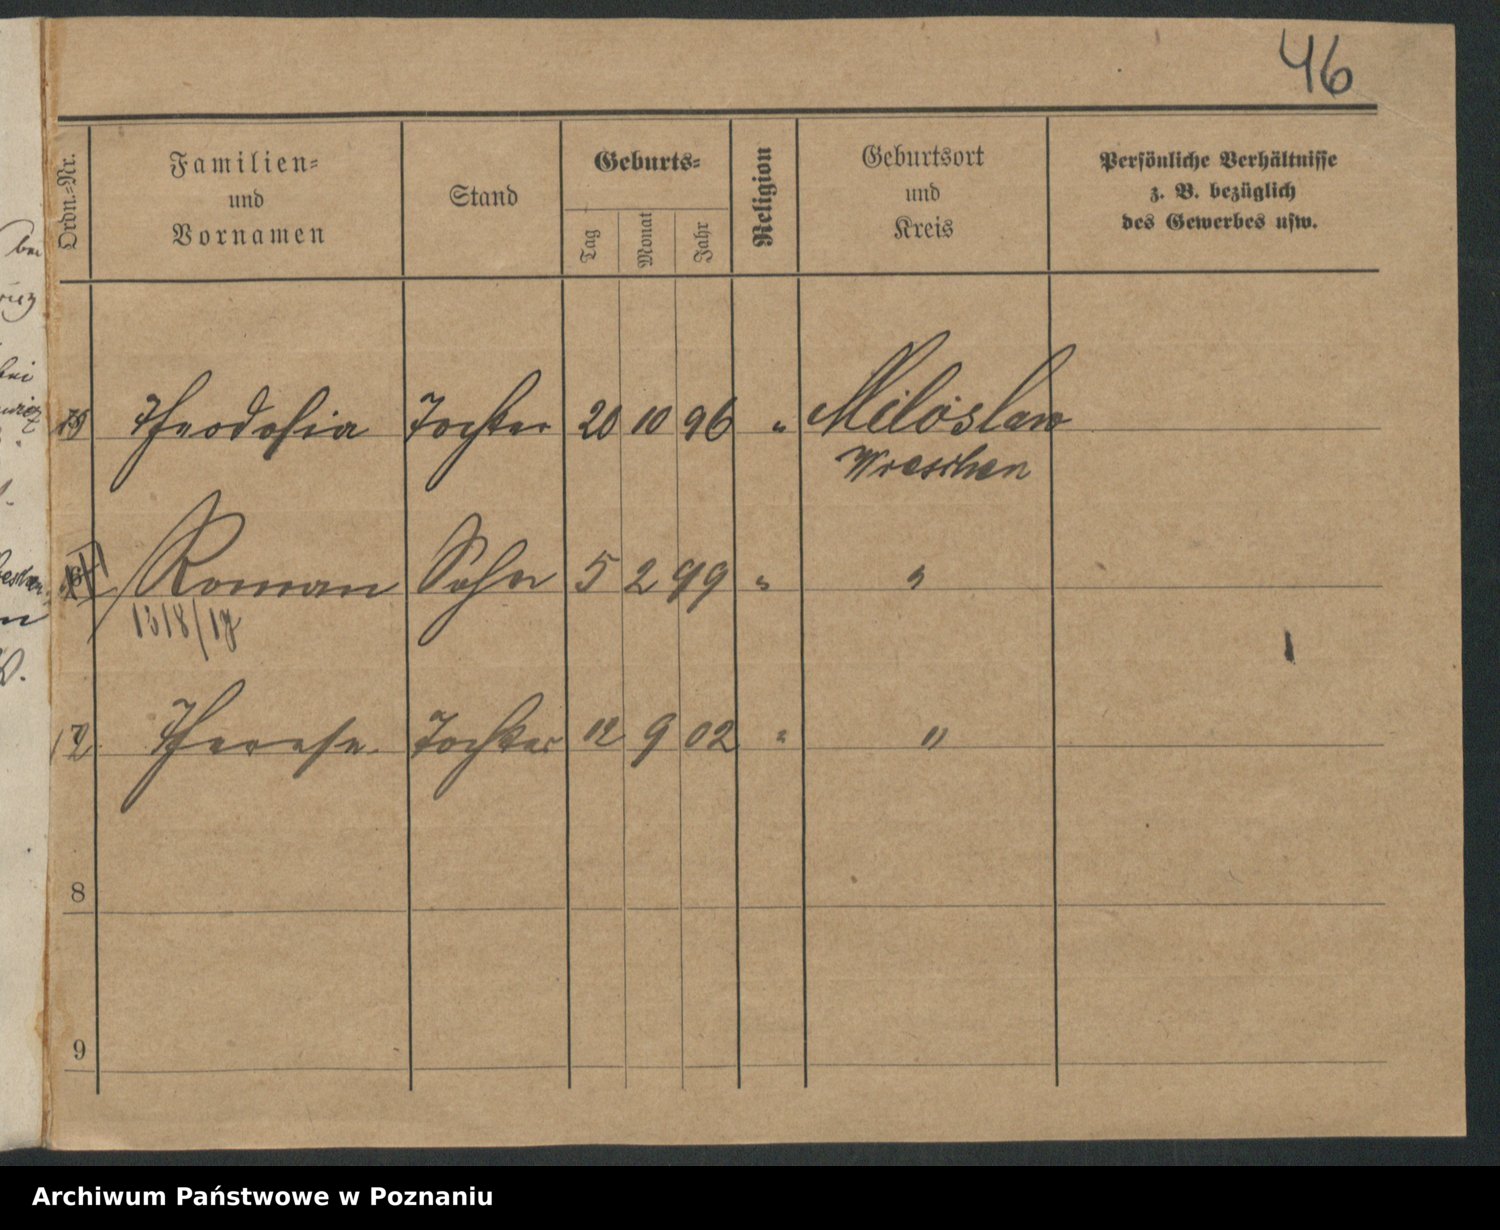 46
Ordn.-Nr.
Familien-
und
Vornamen
Stand
Geburts-
Tag
Monat
Jahr
Religion
Geburtsort
und
Kreis
Persönliche Verhältnisse
z. B. bezüglich
des Gewerbes usw.
bei
bei
Theodosia Tochter 20 10 96 " Miloslaw
Wreschen
Roman Sohn 5 2 99 " "
Therese Tochter 12 9 02 " "
8
9
Archiwum Państwowe w Poznaniu